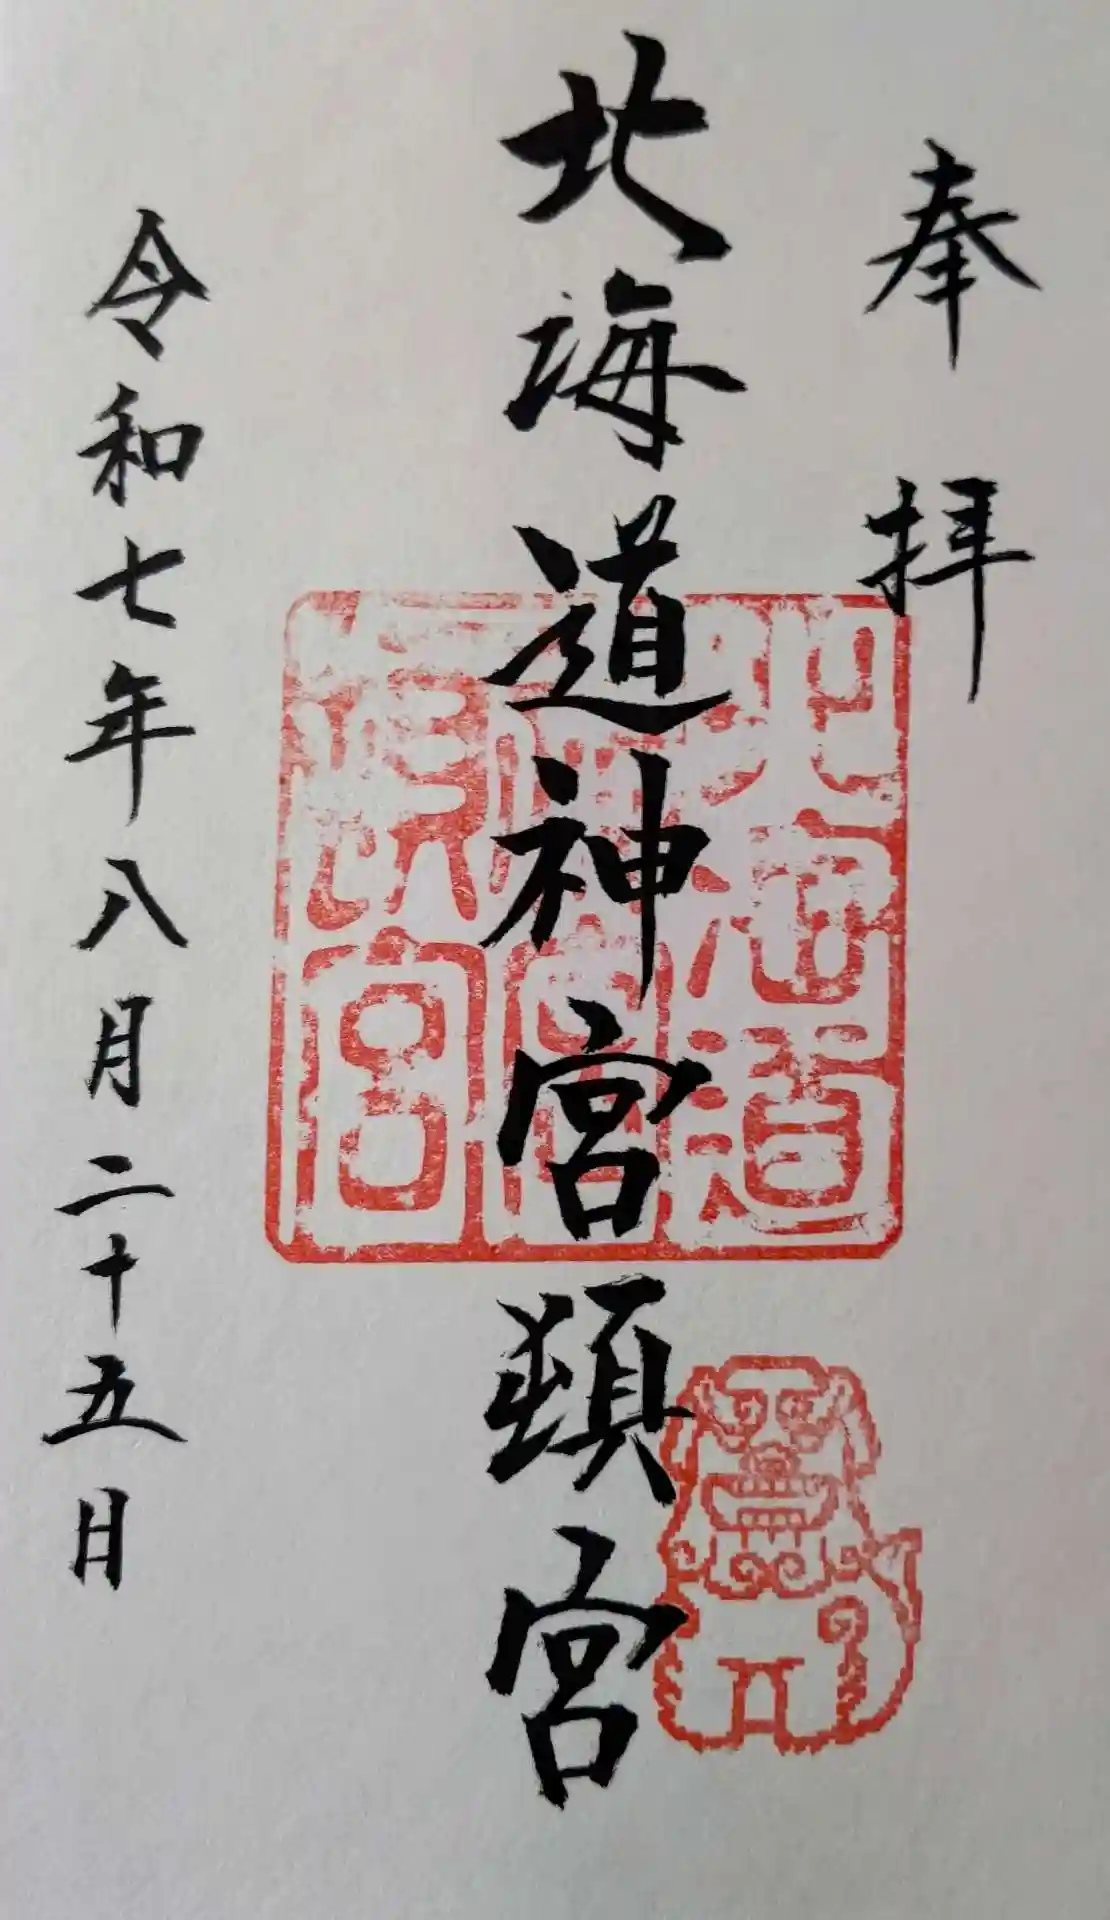 奉拝
北海道神宮頓宮
北海道神宮頓宮
令和七年八月二十五日